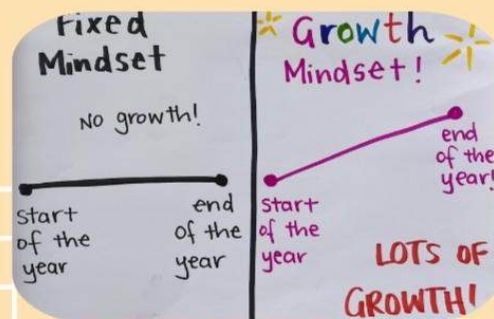 Fixed
Mindset
No growth!
start
of the
year
end
of the
year
Growth
Mindset!
start
of the
year
end
of the
year!
LOTS OF
GROWTH!